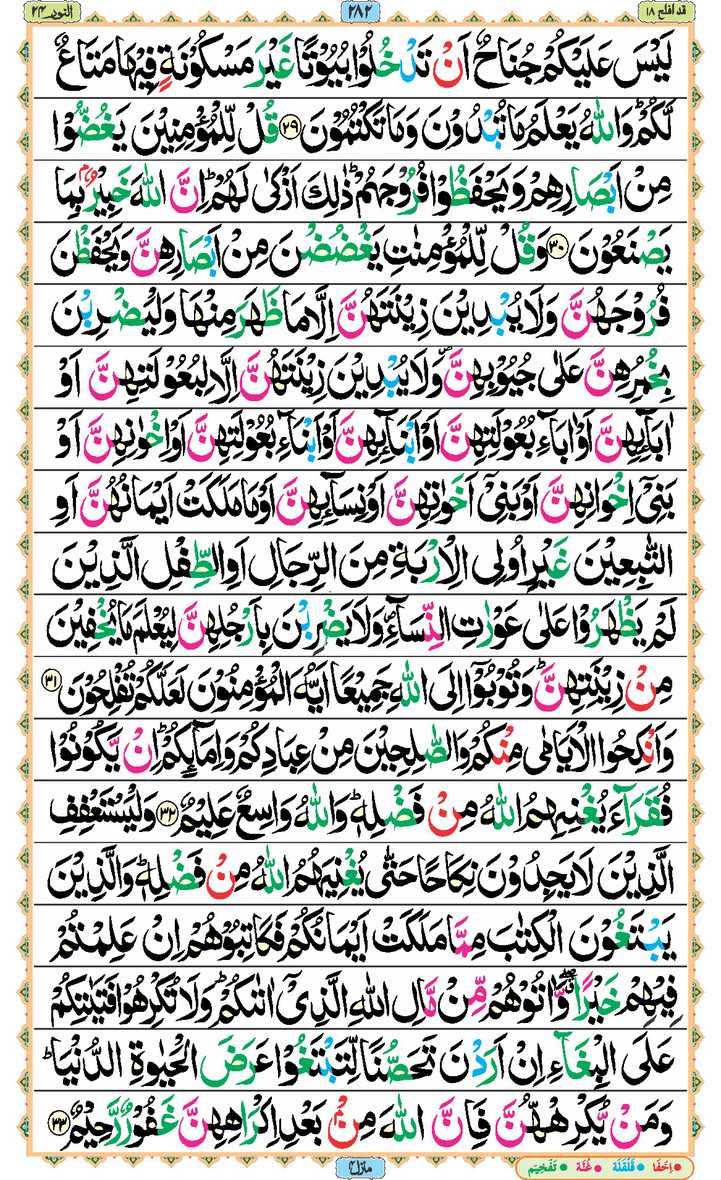 قد افلح ۱۸
۲۸۲
النور ۲۴
لَيْسَ عَلَيْكُمْ جُنَاحٌ اَنْ تَدْخُلُوْا بُيُوْتًا غَيْرَ مَسْكُوْنَةٍ فِيْهَا مَتَاعٌ
لَّكُمْ ؕ وَاللّٰهُ يَعْلَمُ مَا تُبْدُوْنَ وَمَا تَكْتُمُوْنَ ۲۹ قُلْ لِّلْمُؤْمِنِيْنَ يَغُضُّوْا
مِنْ اَبْصَارِهِمْ وَيَحْفَظُوْا فُرُوْجَهُمْ ؕ ذٰلِكَ اَزْكٰى لَهُمْ ؕ اِنَّ اللّٰهَ خَبِيْرٌۢ بِمَا
يَصْنَعُوْنَ ۳۰ وَقُلْ لِّلْمُؤْمِنٰتِ يَغْضُضْنَ مِنْ اَبْصَارِهِنَّ وَيَحْفَظْنَ
فُرُوْجَهُنَّ وَلَا يُبْدِيْنَ زِيْنَتَهُنَّ اِلَّا مَا ظَهَرَ مِنْهَا وَلْيَضْرِبْنَ
بِخُمُرِهِنَّ عَلٰى جُيُوْبِهِنَّ ۪ وَلَا يُبْدِيْنَ زِيْنَتَهُنَّ اِلَّا لِبُعُوْلَتِهِنَّ اَوْ
اٰبَآئِهِنَّ اَوْ اٰبَآءِ بُعُوْلَتِهِنَّ اَوْ اَبْنَآئِهِنَّ اَوْ اَبْنَآءِ بُعُوْلَتِهِنَّ اَوْ اِخْوَانِهِنَّ اَوْ
بَنِيْۤ اِخْوَانِهِنَّ اَوْ بَنِيْۤ اَخَوٰتِهِنَّ اَوْ نِسَآئِهِنَّ اَوْ مَا مَلَكَتْ اَيْمَانُهُنَّ اَوِ
التّٰبِعِيْنَ غَيْرِ اُولِى الْاِرْبَةِ مِنَ الرِّجَالِ اَوِ الطِّفْلِ الَّذِيْنَ
لَمْ يَظْهَرُوْا عَلٰى عَوْرٰتِ النِّسَآءِ ۪ وَلَا يَضْرِبْنَ بِاَرْجُلِهِنَّ لِيُعْلَمَ مَا يُخْفِيْنَ
مِنْ زِيْنَتِهِنَّ ؕ وَتُوْبُوْۤا اِلَى اللّٰهِ جَمِيْعًا اَيُّهَ الْمُؤْمِنُوْنَ لَعَلَّكُمْ تُفْلِحُوْنَ ۳۱
وَاَنْكِحُوا الْاَيَامٰى مِنْكُمْ وَالصّٰلِحِيْنَ مِنْ عِبَادِكُمْ وَاِمَآئِكُمْ ؕ اِنْ يَّكُوْنُوْا
فُقَرَآءَ يُغْنِهِمُ اللّٰهُ مِنْ فَضْلِهٖ ؕ وَاللّٰهُ وَاسِعٌ عَلِيْمٌ ۳۲ وَلْيَسْتَعْفِفِ
الَّذِيْنَ لَا يَجِدُوْنَ نِكَاحًا حَتّٰى يُغْنِيَهُمُ اللّٰهُ مِنْ فَضْلِهٖ ؕ وَالَّذِيْنَ
يَبْتَغُوْنَ الْكِتٰبَ مِمَّا مَلَكَتْ اَيْمَانُكُمْ فَكَاتِبُوْهُمْ اِنْ عَلِمْتُمْ
فِيْهِمْ خَيْرًا ۖۗ وَّاٰتُوْهُمْ مِّنْ مَّالِ اللّٰهِ الَّذِيْۤ اٰتٰىكُمْ ؕ وَلَا تُكْرِهُوْا فَتَيٰتِكُمْ
عَلَى الْبِغَآءِ اِنْ اَرَدْنَ تَحَصُّنًا لِّتَبْتَغُوْا عَرَضَ الْحَيٰوةِ الدُّنْيَا ؕ
وَمَنْ يُّكْرِهْهُّنَّ فَاِنَّ اللّٰهَ مِنْۢ بَعْدِ اِكْرَاهِهِنَّ غَفُوْرٌ رَّحِيْمٌ ۳۳
منزل ۴
اِخْفَا قَلْقَلَة غُنَّة تَفْخِيْم